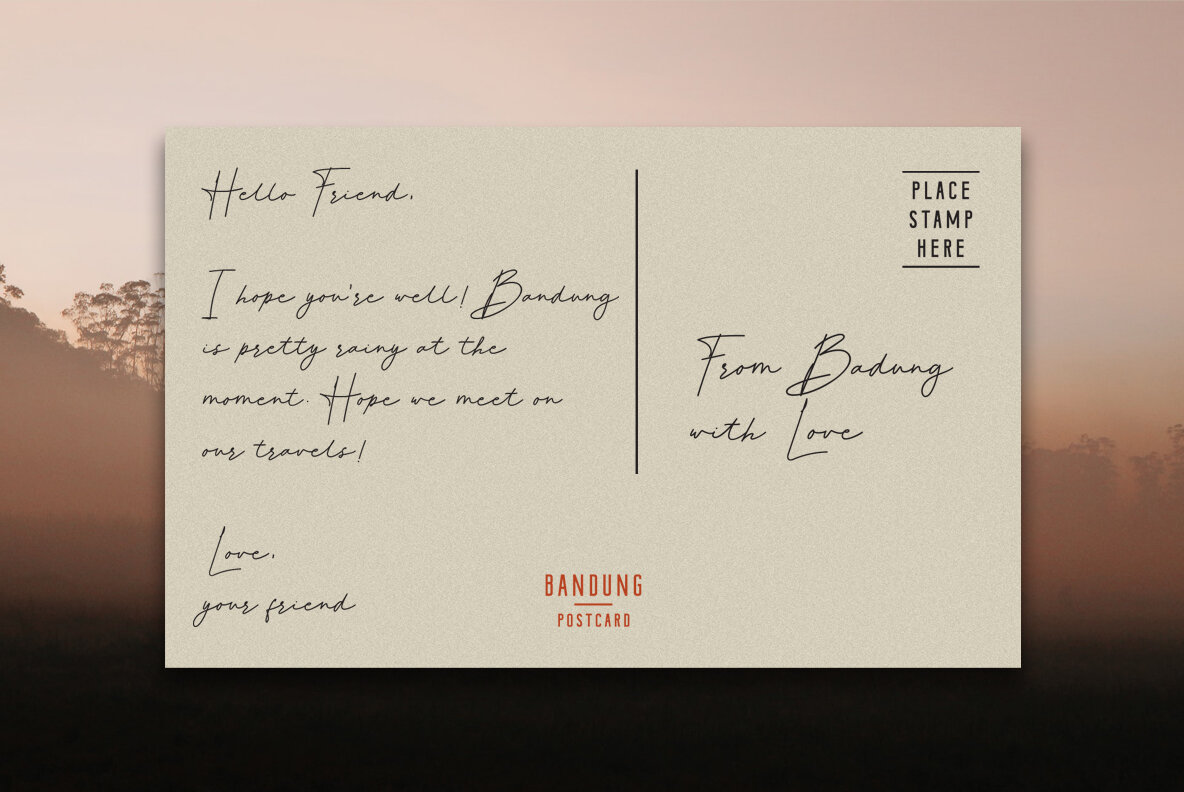 Hello Friend,
I hope you're well! Bandung
is pretty rainy at the
moment. Hope we meet on
our travels!
Love,
your friend
PLACE
STAMP
HERE
From Badung
with Love
BANDUNG
POSTCARD